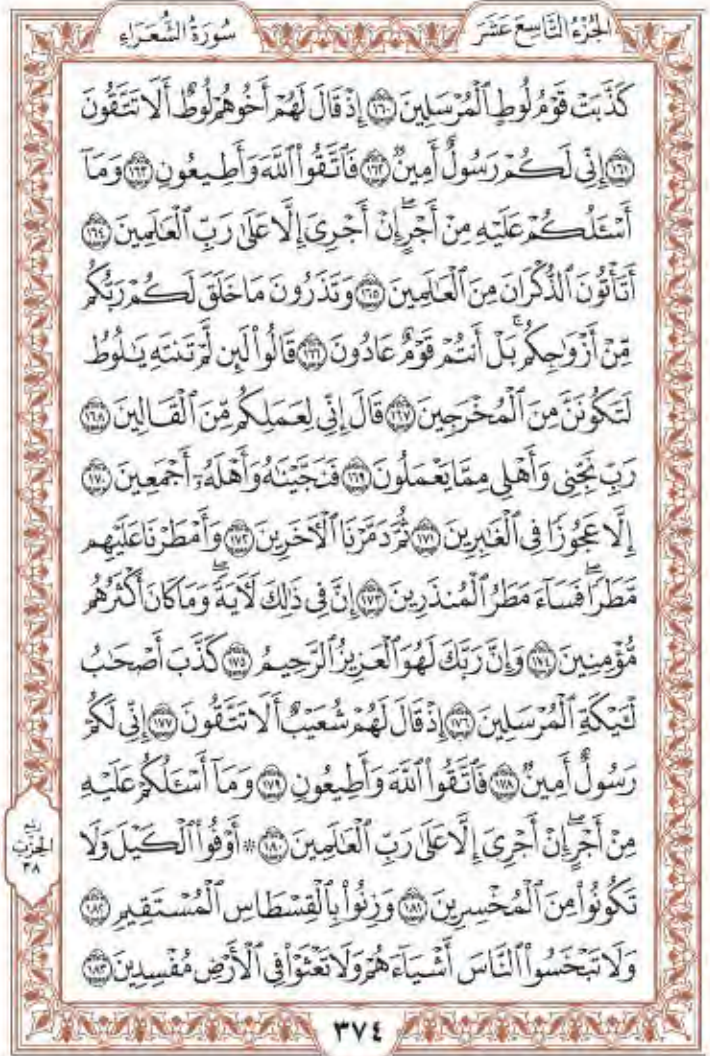 الجُزْءُ التَّاسِعَ عَشَرَ
سُورَةُ الشُّعَرَاءِ
كَذَّبَتْ قَوْمُ لُوطٍ ٱلْمُرْسَلِينَ ١٦٠ إِذْ قَالَ لَهُمْ أَخُوهُمْ لُوطٌ أَلَا تَتَّقُونَ
١٦١ إِنِّي لَكُمْ رَسُولٌ أَمِينٌ ١٦٢ فَٱتَّقُوا۟ ٱللَّهَ وَأَطِيعُونِ ١٦٣ وَمَآ
أَسْـَٔلُكُمْ عَلَيْهِ مِنْ أَجْرٍۖ إِنْ أَجْرِىَ إِلَّا عَلَىٰ رَبِّ ٱلْعَـٰلَمِينَ ١٦٤
أَتَأْتُونَ ٱلذُّكْرَانَ مِنَ ٱلْعَـٰلَمِينَ ١٦٥ وَتَذَرُونَ مَا خَلَقَ لَكُمْ رَبُّكُم
مِّنْ أَزْوَٰجِكُمۚ بَلْ أَنتُمْ قَوْمٌ عَادُونَ ١٦٦ قَالُوا۟ لَئِن لَّمْ تَنتَهِ يَـٰلُوطُ
لَتَكُونَنَّ مِنَ ٱلْمُخْرَجِينَ ١٦٧ قَالَ إِنِّى لِعَمَلِكُم مِّنَ ٱلْقَالِينَ ١٦٨
رَبِّ نَجِّنِى وَأَهْلِى مِمَّا يَعْمَلُونَ ١٦٩ فَنَجَّيْنَـٰهُ وَأَهْلَهُۥٓ أَجْمَعِينَ ١٧٠
إِلَّا عَجُوزًا فِى ٱلْغَـٰبِرِينَ ١٧١ ثُمَّ دَمَّرْنَا ٱلْـَٔاخَرِينَ ١٧٢ وَأَمْطَرْنَا عَلَيْهِم
مَّطَرًاۖ فَسَآءَ مَطَرُ ٱلْمُنذَرِينَ ١٧٣ إِنَّ فِى ذَٰلِكَ لَـَٔايَةًۖ وَمَا كَانَ أَكْثَرُهُم
مُّؤْمِنِينَ ١٧٤ وَإِنَّ رَبَّكَ لَهُوَ ٱلْعَزِيزُ ٱلرَّحِيمُ ١٧٥ كَذَّبَ أَصْحَـٰبُ
لْـَٔيْكَةِ ٱلْمُرْسَلِينَ ١٧٦ إِذْ قَالَ لَهُمْ شُعَيْبٌ أَلَا تَتَّقُونَ ١٧٧ إِنِّى لَكُمْ
رَسُولٌ أَمِينٌ ١٧٨ فَٱتَّقُوا۟ ٱللَّهَ وَأَطِيعُونِ ١٧٩ وَمَآ أَسْـَٔلُكُمْ عَلَيْهِ
مِنْ أَجْرٍۖ إِنْ أَجْرِىَ إِلَّا عَلَىٰ رَبِّ ٱلْعَـٰلَمِينَ ١٨٠ ۞ أَوْفُوا۟ ٱلْكَيْلَ وَلَا
تَكُونُوا۟ مِنَ ٱلْمُخْسِرِينَ ١٨١ وَزِنُوا۟ بِٱلْقِسْطَاسِ ٱلْمُسْتَقِيمِ ١٨٢
وَلَا تَبْخَسُوا۟ ٱلنَّاسَ أَشْيَآءَهُمْ وَلَا تَعْثَوْا۟ فِى ٱلْأَرْضِ مُفْسِدِينَ ١٨٣
الحِزْبِ
٣٨
٣٧٤